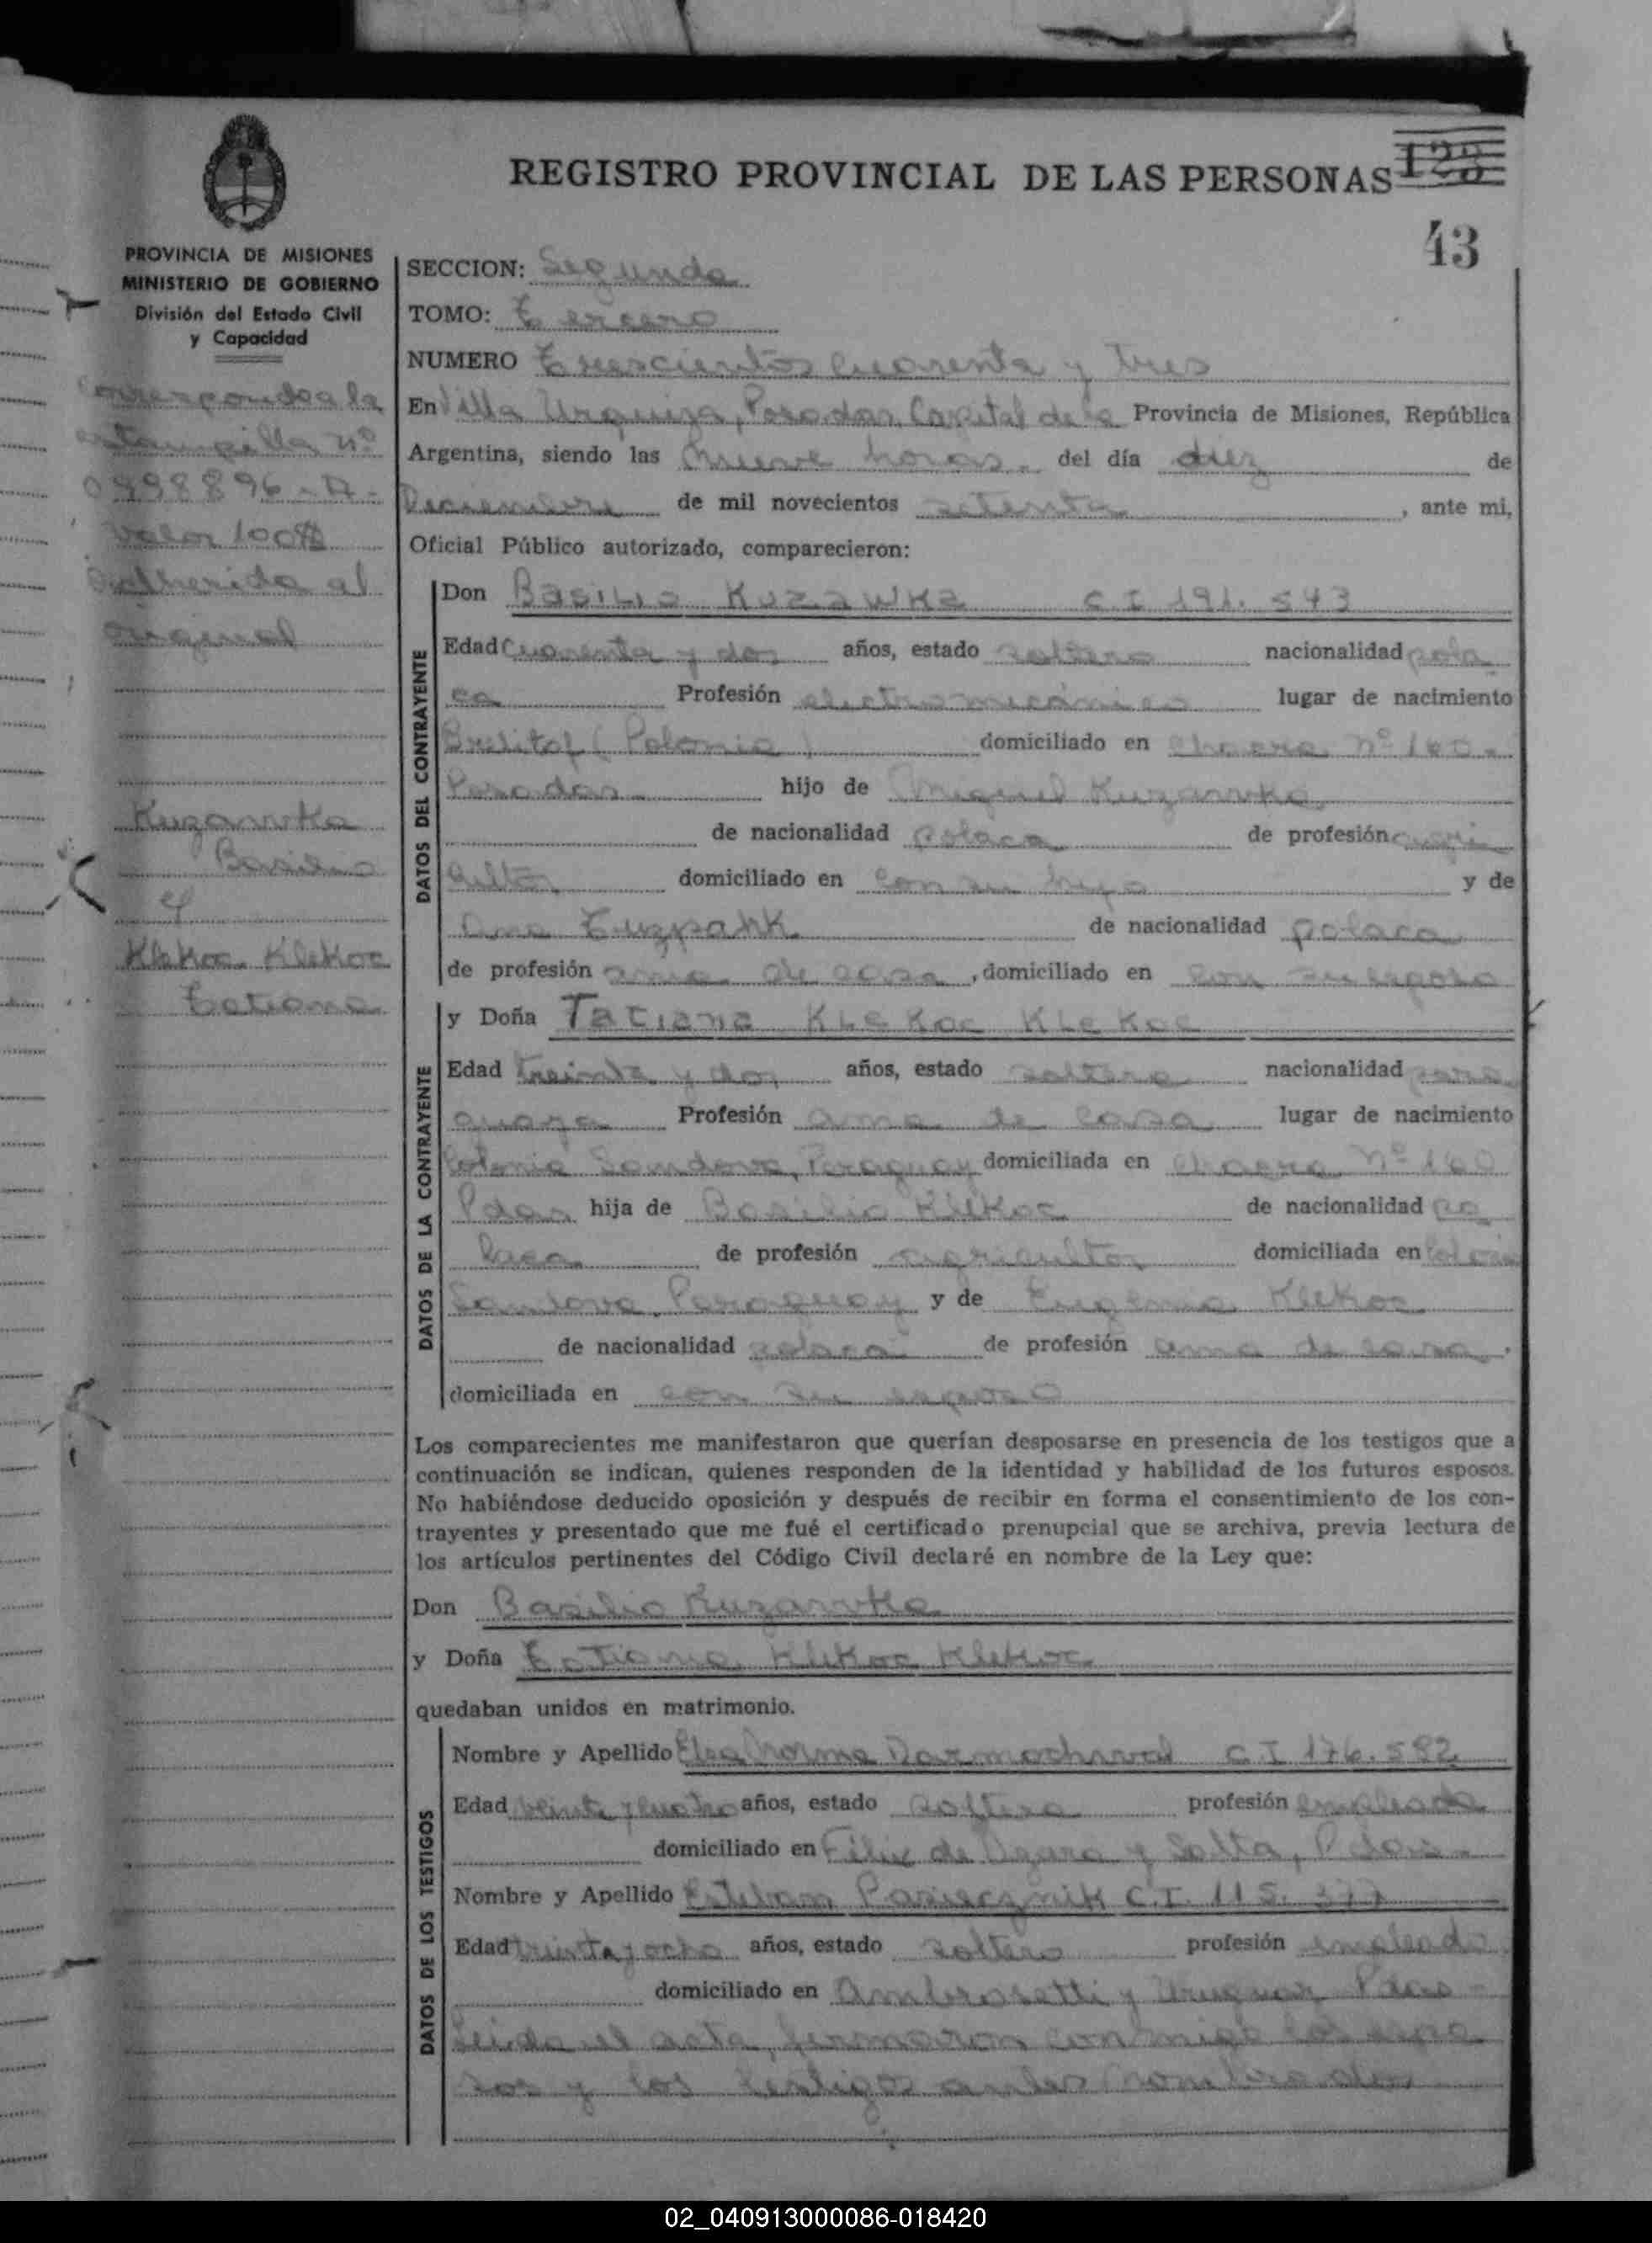 REGISTRO PROVINCIAL DE LAS PERSONAS 128
43
PROVINCIA DE MISIONES
MINISTERIO DE GOBIERNO
División del Estado Civil
y Capacidad
corresponde a la
estampilla nº
0998896-A-
Valor 100$
adherida al
original
Kuzawka
Basilio
y
Klekoc Klekoc
Tatiana
SECCION: Segunda
TOMO: Tercero
NUMERO Trescientos cuarenta y tres
En Villa Urquiza, Posadas, Capital de la Provincia de Misiones, República
Argentina, siendo las nueve horas del día diez de
Diciembre de mil novecientos setenta, ante mi,
Oficial Público autorizado, comparecieron:
DATOS DEL CONTRAYENTE
Don Basilio Kuzawka C.I 191.543
Edad cuarenta y dos años, estado soltero nacionalidad pola
ca Profesión electromecánico lugar de nacimiento
(Polonia) domiciliado en chacra nº 160.
Posadas hijo de Miguel Kuzawka
de nacionalidad polaca de profesión agri
cultor domiciliado en con su hijo y de
Ana de nacionalidad polaca
de profesión ama de casa, domiciliado en con su esposo
DATOS DE LA CONTRAYENTE
y Doña Tatiana Klekoc Klekoc
Edad treinta y dos años, estado soltera nacionalidad para
guaya Profesión ama de casa lugar de nacimiento
Colonia Sandova, Paraguay domiciliada en chacra Nº 160
Pdas hija de Basilio Klekoc de nacionalidad po
laca de profesión agricultor domiciliada en Colonia
Sandova, Paraguay y de Eugenia Klekoc
de nacionalidad polaca de profesión ama de casa.
domiciliada en con su esposo
Los comparecientes me manifestaron que querían desposarse en presencia de los testigos que a
continuación se indican, quienes responden de la identidad y habilidad de los futuros esposos.
No habiéndose deducido oposición y después de recibir en forma el consentimiento de los con-
trayentes y presentado que me fué el certificado prenupcial que se archiva, previa lectura de
los artículos pertinentes del Código Civil declaré en nombre de la Ley que:
Don Basilio Kuzawka
y Doña Tatiana Klekoc Klekoc
quedaban unidos en matrimonio.
DATOS DE LOS TESTIGOS
Nombre y Apellido Elsa Norma C I 176.592
Edad veinte y cuatro años, estado soltera profesión empleada
domiciliado en Félix de Azara y Salta, Pdas.
Nombre y Apellido Esteban Pasiecznik C.I. 115.377
Edad treinta y ocho años, estado soltero profesión empleado
domiciliado en Ambrosetti y Uruguay Pdas-
Leida el acta, firmaron conmigo los espo
sos y los testigos antes nombrados
02_040913000086-018420